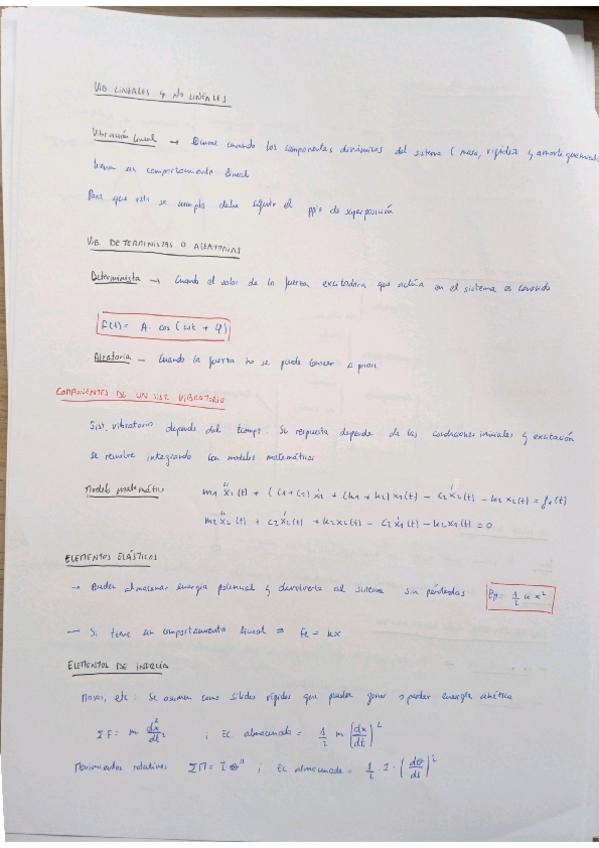 VIB LINEALES Y NO LINEALES
Vibración lineal → Ocurre cuando los componentes dinámicos del sistema ( masa, rigidez y amortiguamiento
tienen un comportamiento lineal
Para que esto se cumpla debe seguir el pp'o de superposición
VIB. DETERMINISTAS O ALEATORIAS
Determinista → Cuando el valor de la fuerza excitadora que actúa en el sistema es conocido
f(t) = A · cos (ωt + φ)
Aleatoria — Cuando la fuerza no se puede conocer a priori
COMPONENTES DE UN SIST. VIBRATORIO
Sist. vibratorio depende del tiempo. Su respuesta depende de las condiciones iniciales y excitación
se resuelve integrando con modelos matemáticos
Modelo matemático m1 ẍ1(t) + (c1+c2) ẋ1 + (k1 + k2) x1(t) - c2 ẋ2(t) - k2 x2(t) = f1(t)
m2 ẍ2(t) + c2 ẋ2(t) + k2 x2(t) - c2 ẋ1(t) - k2 x1(t) = 0
ELEMENTOS ELÁSTICOS
→ Pueden almacenar energía potencial y devolverla al sistema sin pérdidas Ep = 1/2 k x²
— Si tiene un comportamiento lineal ⇒ Fe = kx
ELEMENTOS DE INERCIA
Masas, etc. Se asumen como sólidos rígidos que pueden ganar o perder energía cinética
ΣF = m d²x/dt² ; Ec almacenada = 1/2 m (dx/dt)²
Movimientos rotativos ΣM = I θ'' ; Ec almacenada = 1/2 · I · (dθ/dt)²